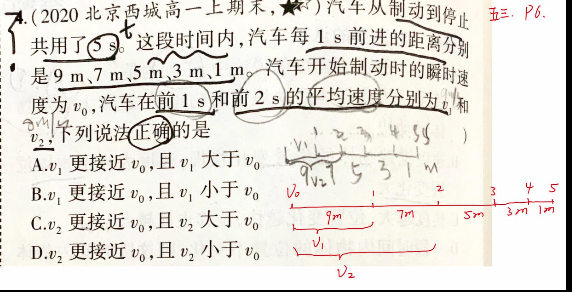 4.(2020 北京西城高一上期末,★)汽车从制动到停止
共用了 5 s。这段时间内,汽车每 1 s 前进的距离分别
是 9 m、7 m、5 m、3 m、1 m。汽车开始制动时的瞬时速
度为 v₀,汽车在前 1 s 和前 2 s 的平均速度分别为 v₁ 和
v₂,下列说法正确的是 )
A.v₁ 更接近 v₀,且 v₁ 大于 v₀
B.v₁ 更接近 v₀,且 v₁ 小于 v₀
C.v₂ 更接近 v₀,且 v₂ 大于 v₀
D.v₂ 更接近 v₀,且 v₂ 小于 v₀
五三. P6.
t
V₁ 1 2 3 4 5S
9 V₂ 7 5 3 1 m
V₀ 1 2 3 4 5
9m 7m 5m 3m 1m
V₁
V₂